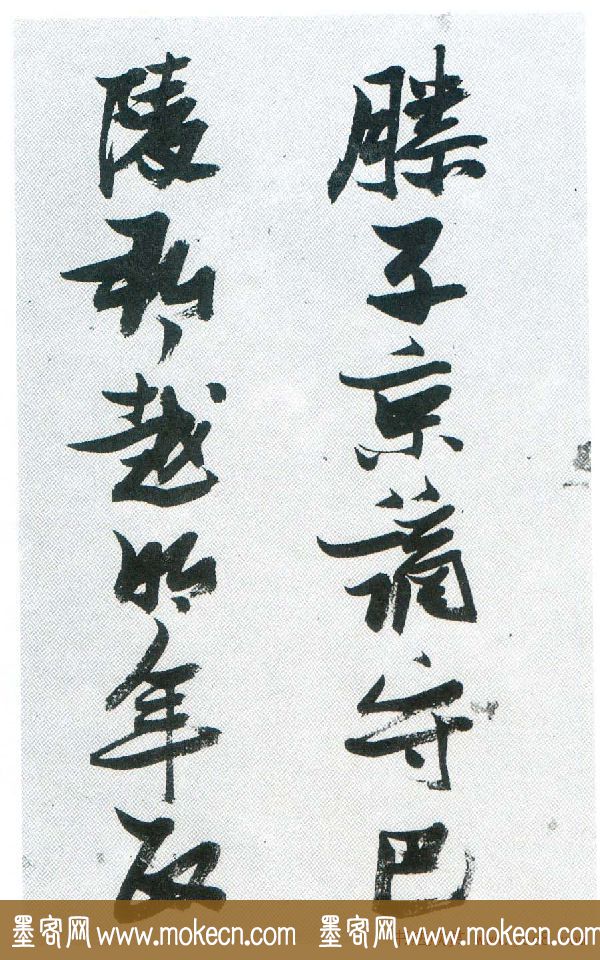 滕子京謫守巴
陵郡越明年政
墨客网 www.mokecn.com 墨客网 www.mokecn.com